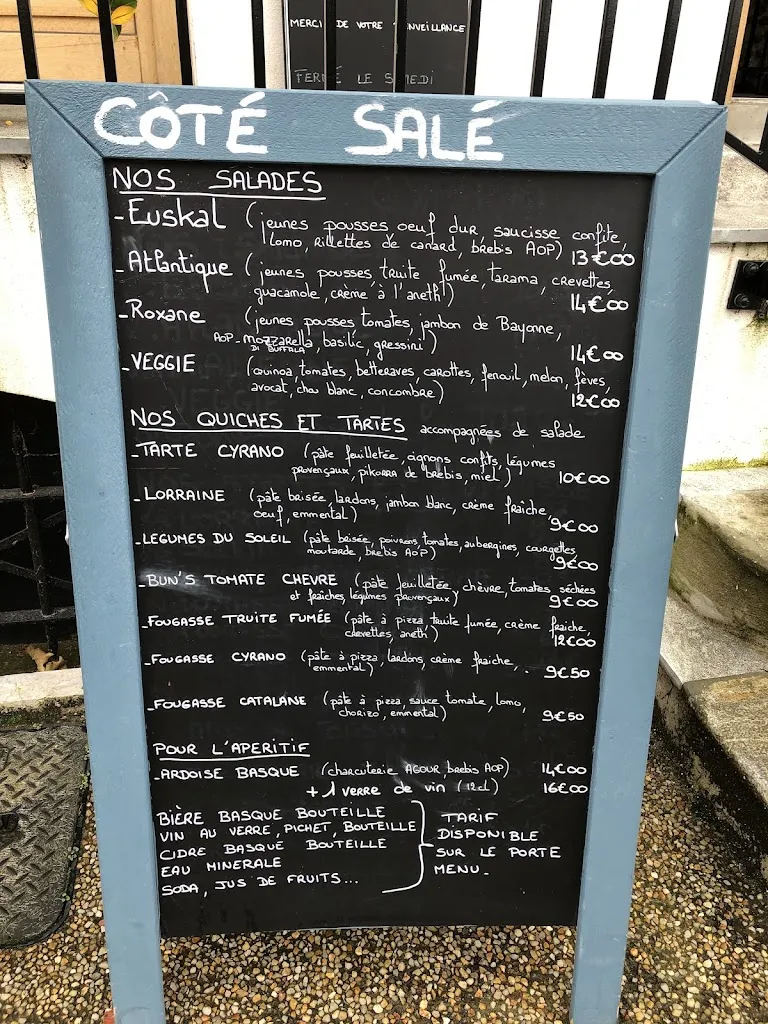 MERCI DE VOTRE
FERMÉ LE SAMEDI
CÔTÉ SALÉ
NOS SALADES
-Euskal (jeunes pousses oeuf dur, saucisse confite,
lomo, rillettes de canard, brebis AOP) 13€00
-Atlantique (jeunes pousses, truite fumée, tarama, crevettes,
guacamole, crème à l'aneth) 14€00
-Roxane (jeunes pousses tomates, jambon de Bayonne,
AOP-mozzarella, basilic, gressini) 14€00
DI BUFFALA
-VEGGIE (quinoa, tomates, betteraves, carottes, fenouil, melon, fèves,
avocat, chou blanc, concombre) 12€00
NOS QUICHES ET TARTES accompagnées de salade
-TARTE CYRANO (pâte feuilletée, oignons confits, légumes
provençaux, pikorra de brebis, miel) 10€00
-LORRAINE (pâte brisée, lardons, jambon blanc, crème fraîche,
oeuf, emmental) 9€00
-LEGUMES DU SOLEIL (pâte brisée, poivrons, tomates, aubergines, courgettes,
moutarde, brebis AOP) 9€00
-BUN'S TOMATE CHEVRE (pâte feuilletée, chèvre, tomates séchées
et fraîches, légumes provençaux) 9€00
-FOUGASSE TRUITE FUMÉE (pâte à pizza truite fumée, crème fraiche,
crevettes, aneth) 12€00
-FOUGASSE CYRANO (pâte à pizza, lardons, crème fraiche,
emmental) 9€50
-FOUGASSE CATALANE (pâte à pizza, sauce tomate, lomo,
chorizo, emmental) 9€50
POUR L'APERITIF
-ARDOISE BASQUE (charcuterie AGOUR, brebis AOP) 14€00
+ 1 verre de vin (12cl) 16€00
BIÈRE BASQUE BOUTEILLE
VIN AU VERRE, PICHET, BOUTEILLE
CIDRE BASQUE BOUTEILLE
EAU MINERALE
SODA, JUS DE FRUITS...
TARIF
DISPONIBLE
SUR LE PORTE
MENU.